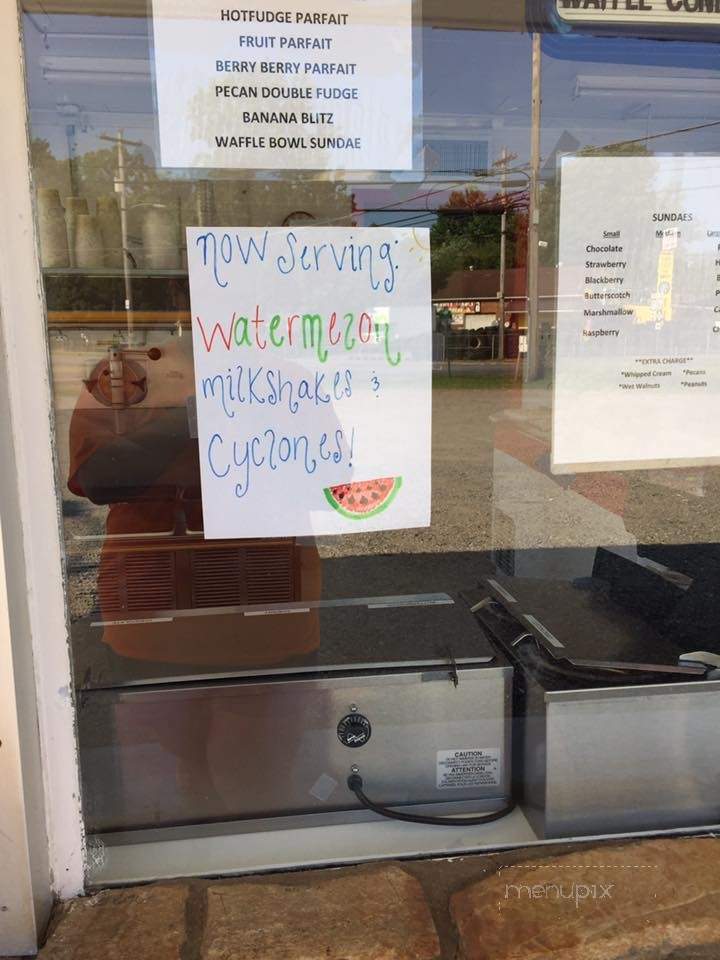 HOTFUDGE PARFAIT
FRUIT PARFAIT
BERRY BERRY PARFAIT
PECAN DOUBLE FUDGE
BANANA BLITZ
WAFFLE BOWL SUNDAE
now Serving:
watermelon
milkshakes &
cyclones!
SUNDAES
Small
Chocolate
Strawberry
Blackberry
Butterscotch
Marshmallow
Raspberry
**EXTRA CHARGE**
*Whipped Cream *Pecans
*Wet Walnuts *Peanuts
CAUTION
ATTENTION
menupix